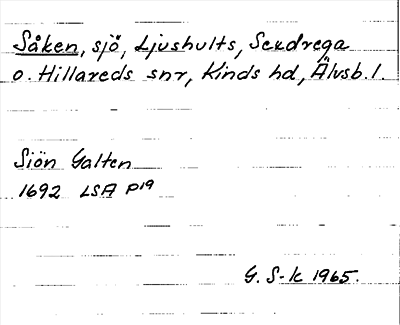 Såken, sjö, Ljushults, Sexdrega
o. Hillareds snr, Kinds hd, Älvsb. l.
Siön Galten
1692 LSA P19
G. S-k 1965.